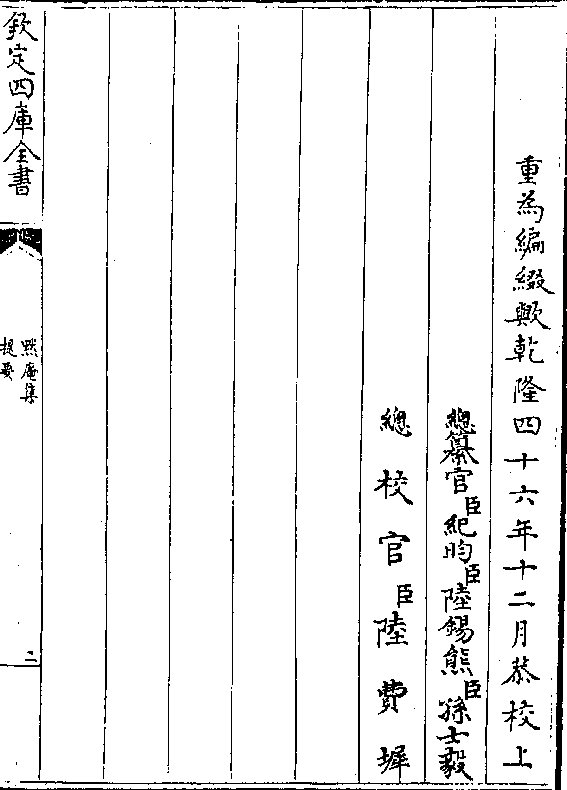 重為編綴歟乾隆四十六年十二月恭校上
總纂官臣紀昀臣陸錫熊臣孫士毅
總校官臣陸費墀
欽定四庫全書
默庵集
提要
二